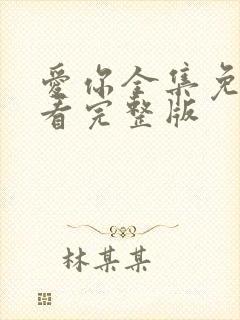 愛你全集免
看完整版
林某某